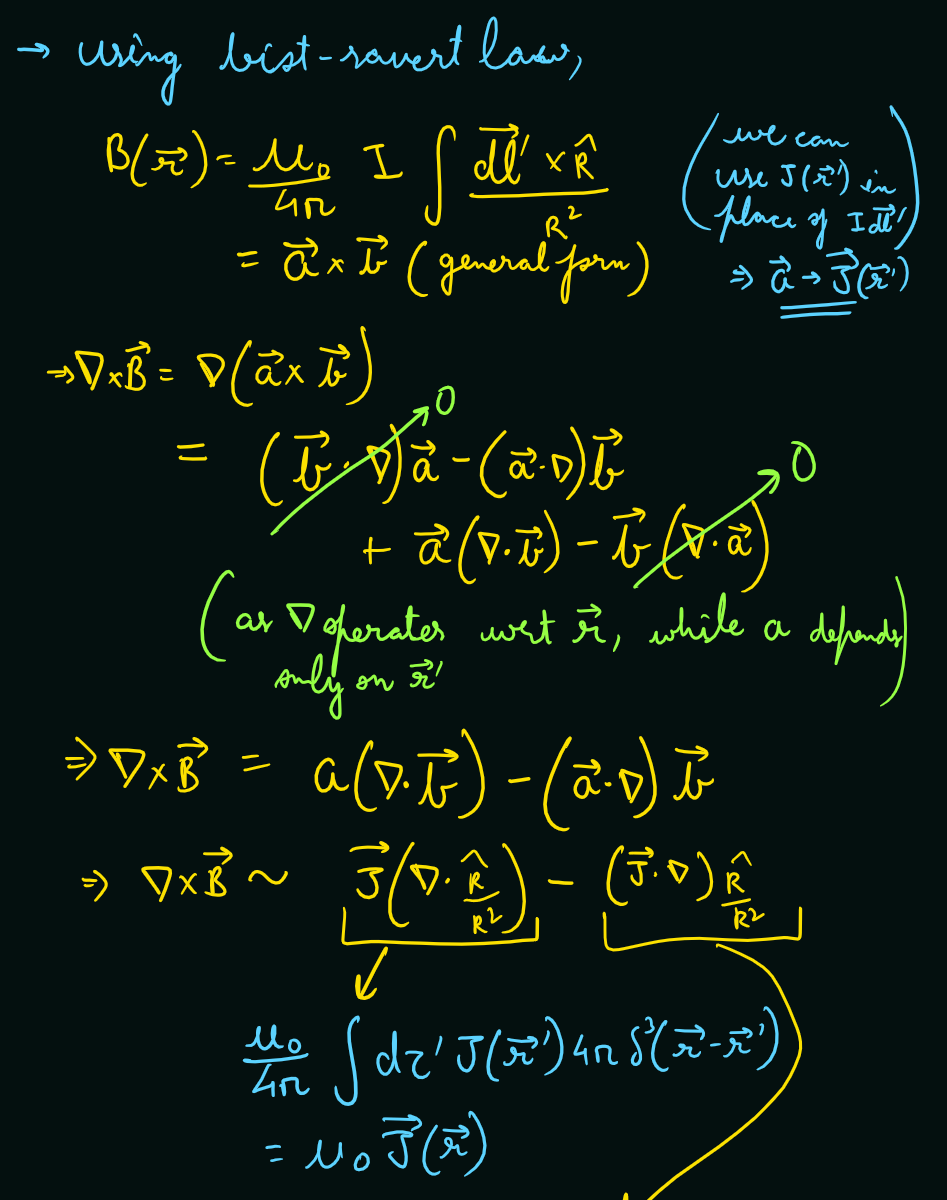 → using biot-savert law,
B(r⃗) = μ₀/4π I ∫ dl⃗' × R̂ / R²
(we can
use J(r⃗') in
place of I dl⃗')
⇒ a⃗ → J⃗(r⃗')
= a⃗ × b⃗ (general form)
→ ∇×B⃗ = ∇(a⃗ × b⃗)
= (b⃗·∇)a⃗ - (a⃗·∇)b⃗
0
+ a⃗(∇·b⃗) - b⃗(∇·a⃗)
0
(as ∇ operates wrt r⃗, while a depends
only on r⃗')
⇒ ∇×B⃗ = a(∇·b⃗) - (a⃗·∇)b⃗
⇒ ∇×B⃗ ~ J⃗(∇·R̂/R²) - (J⃗·∇)R̂/R²
μ₀/4π ∫ dτ' J(r⃗') 4π δ³(r⃗-r⃗')
= μ₀ J⃗(r⃗)